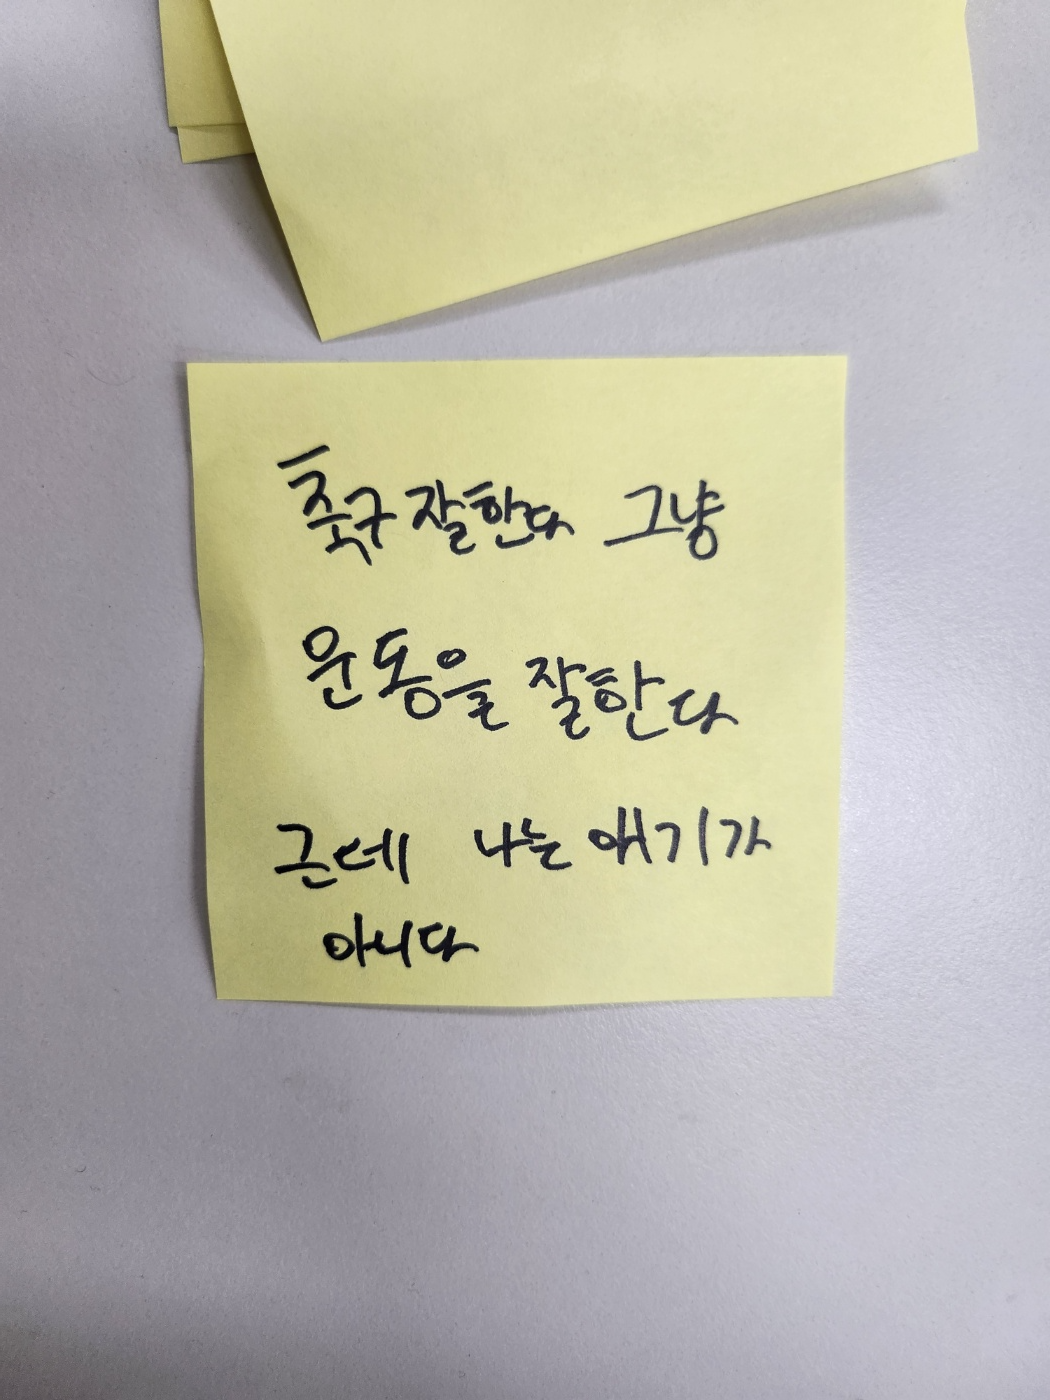 축구 잘한다 그냥
운동을 잘한다
근데 나는 애기가
아니다